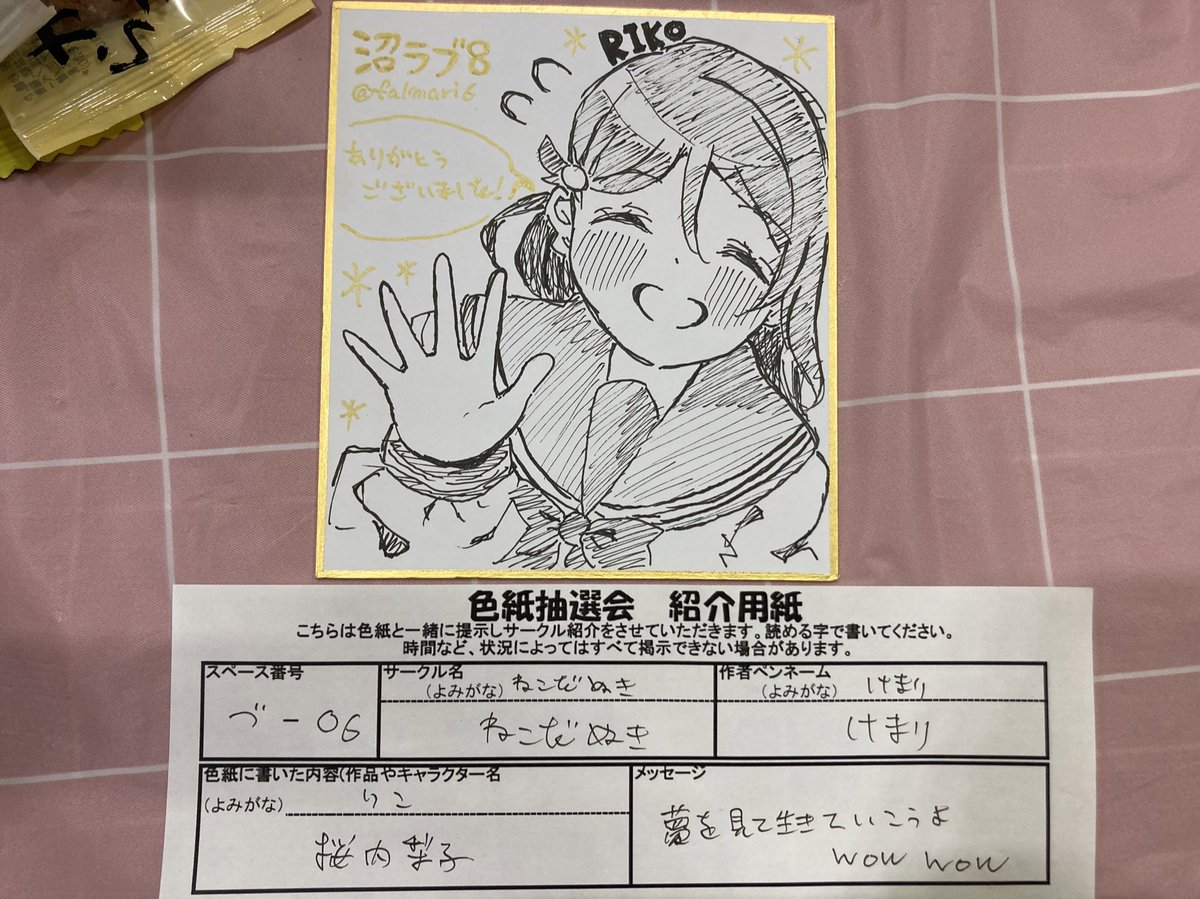 RIKO
沼ラブ8
@falmari6
ありがとう
ございました!
色紙抽選会 紹介用紙
こちらは色紙と一緒に提示しサークル紹介をさせていただきます。読める字で書いてください。
時間など、状況によってはすべて掲示できない場合があります。
スペース番号
づ-06
サークル名
(よみがな) ねこだぬき
ねこだぬき
作者ペンネーム
(よみがな) けまり
けまり
色紙に書いた内容(作品やキャラクター名
(よみがな) りこ
桜内梨子
メッセージ
夢を見て生きていこうよ
wow wow